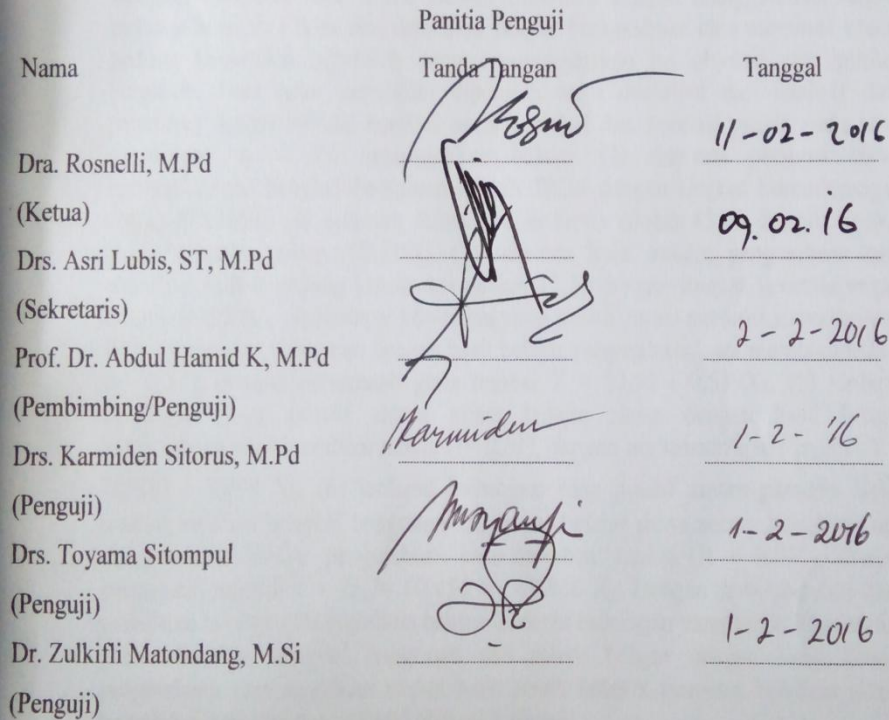 Panitia Penguji
Nama Tanda Tangan Tanggal
Rosnel 11-02-2016
Dra. Rosnelli, M.Pd
(Ketua) 09.02.16
Drs. Asri Lubis, ST, M.Pd
(Sekretaris)
2-2-2016
Prof. Dr. Abdul Hamid K, M.Pd
(Pembimbing/Penguji)
Karmiden 1-2-'16
Drs. Karmiden Sitorus, M.Pd
(Penguji)
1-2-2016
Drs. Toyama Sitompul
(Penguji)
1-2-2016
Dr. Zulkifli Matondang, M.Si
(Penguji)